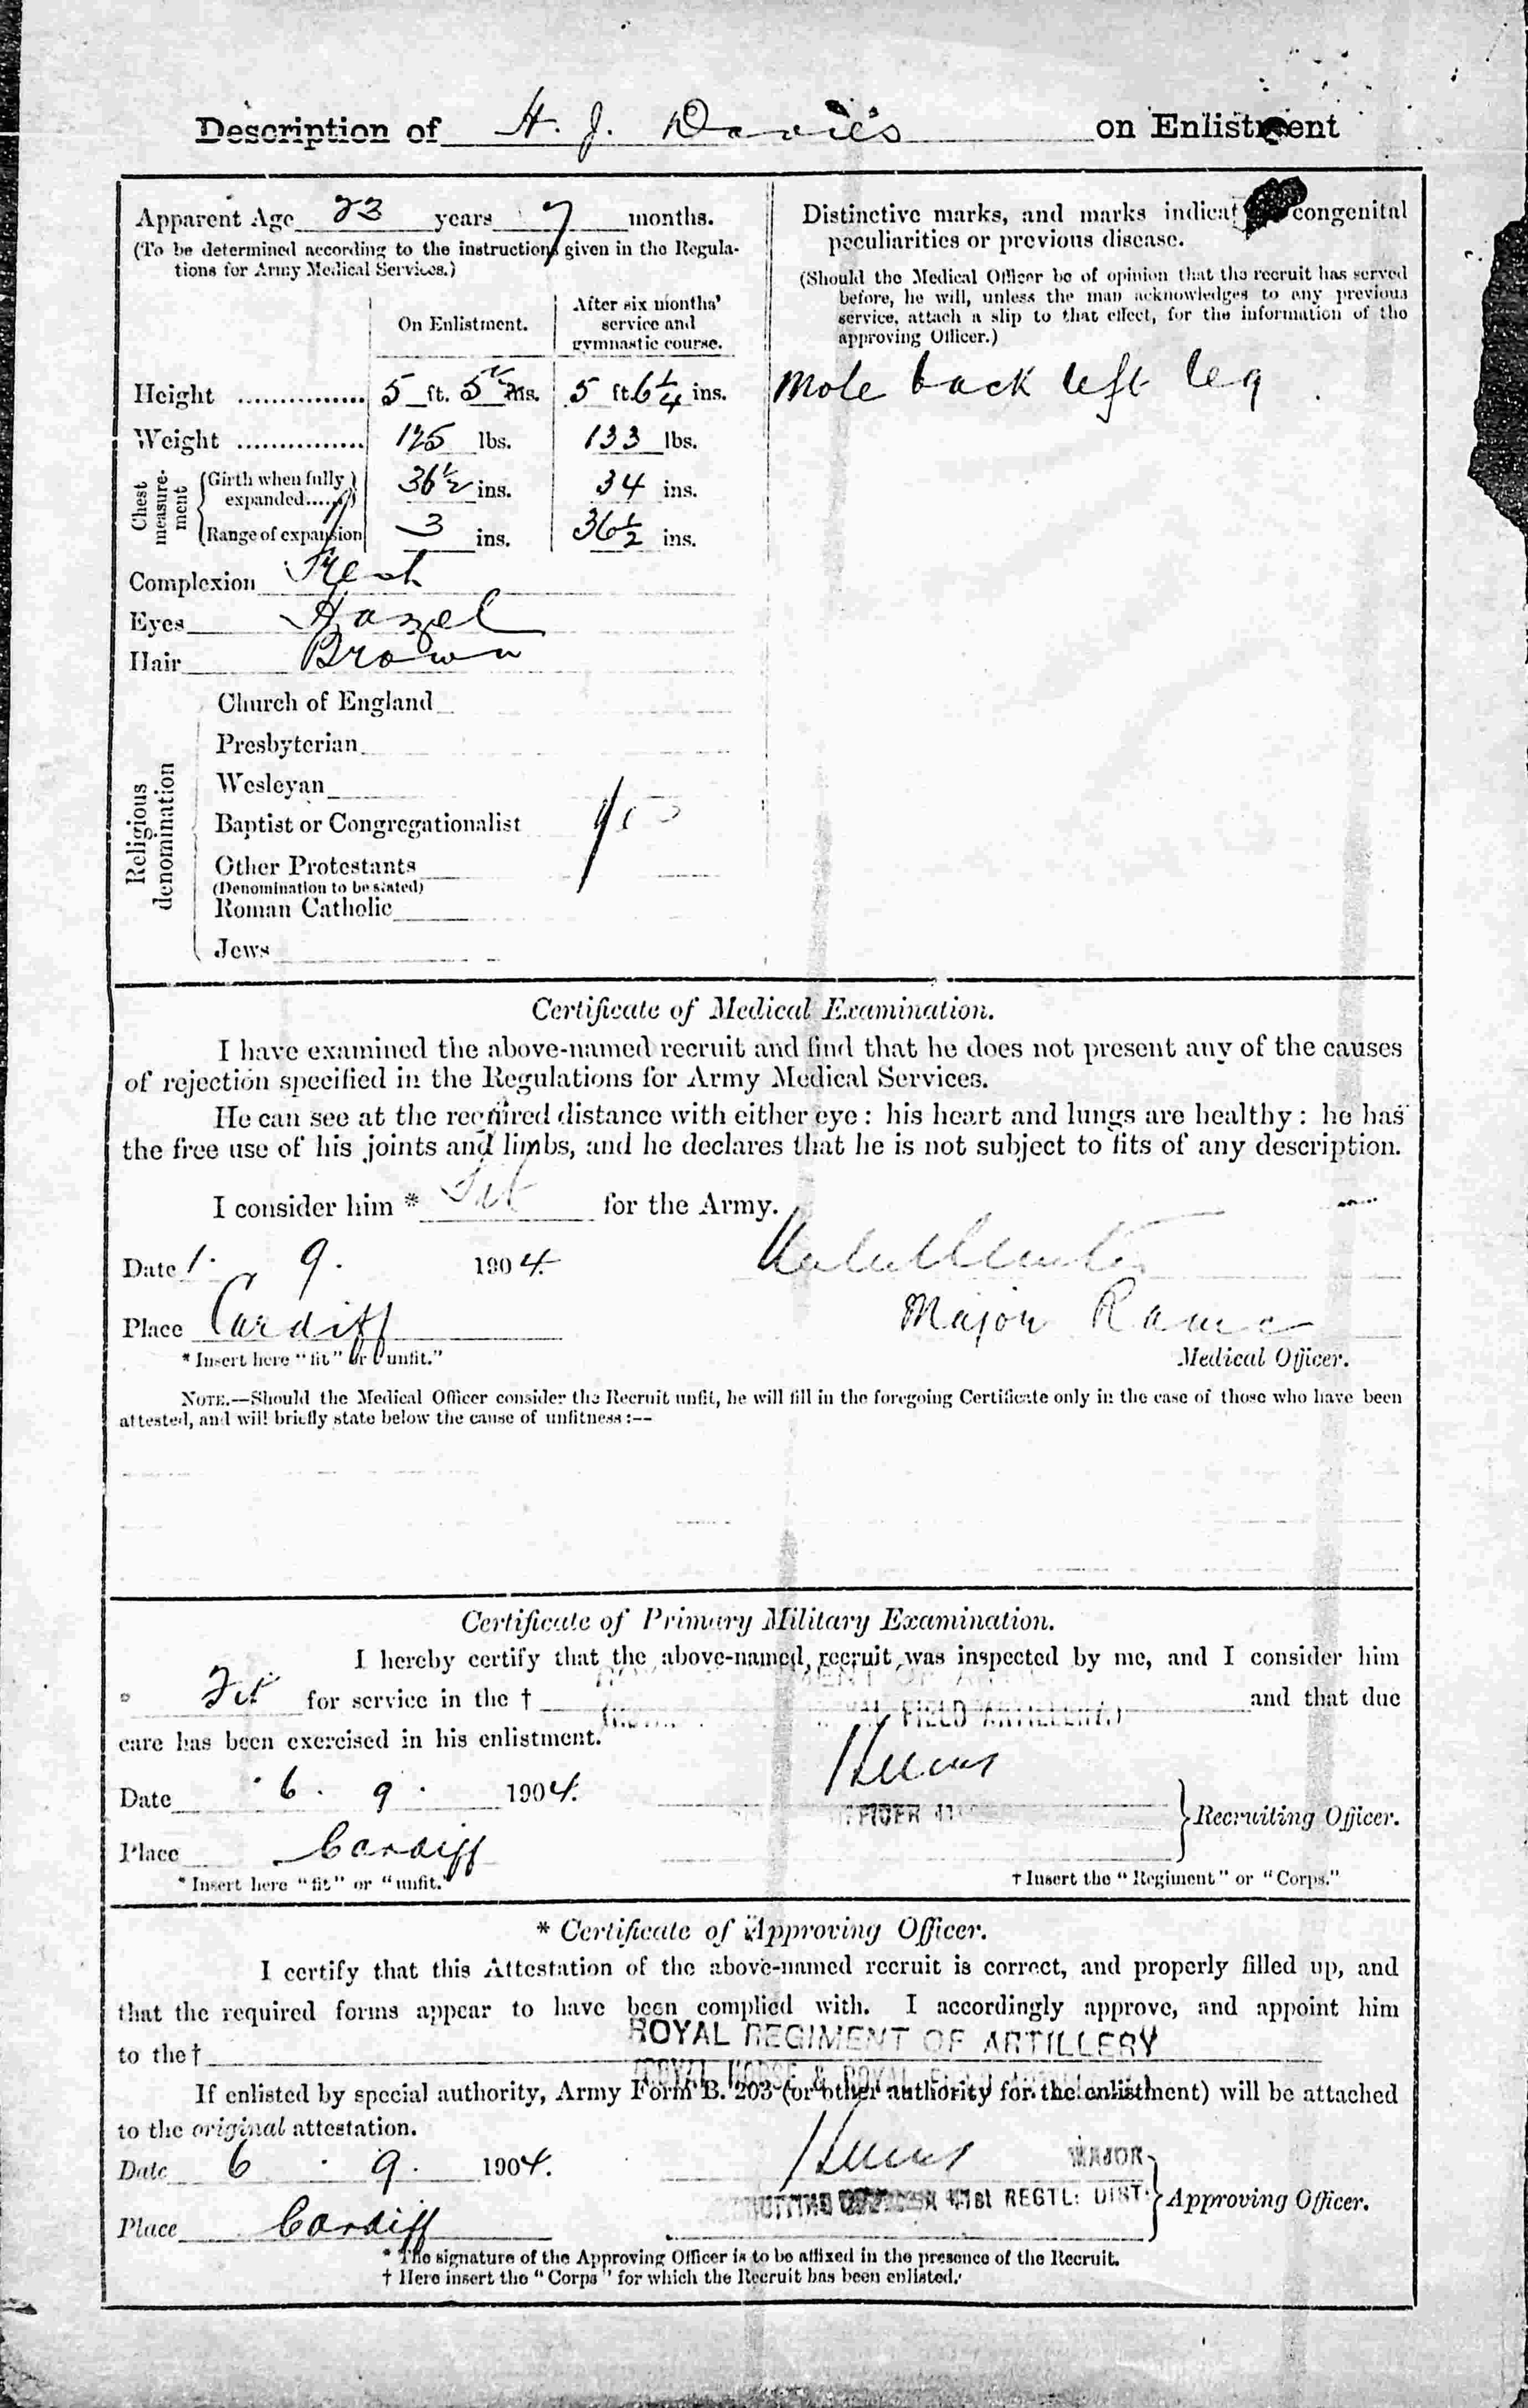 Description of H. J. Davies on Enlistment
Apparent Age 23 years 7 months.
(To be determined according to the instructions given in the Regula-
tions for Army Medical Services.)
On Enlistment.
After six months'
service and
gymnastic course.
Height ............... 5 ft. 5½ ins. 5 ft. 6¼ ins.
Weight ............... 125 lbs. 133 lbs.
Chest
measure-
ment
Girth when fully
expanded...... 36½ ins. 34 ins.
Range of expansion 3 ins. 36½ ins.
Complexion Fresh
Eyes Hazel
Hair Brown
Religious
denomination
Church of England
Presbyterian
Wesleyan
Baptist or Congregationalist
Other Protestants
(Denomination to be stated)
Roman Catholic
Jews
Distinctive marks, and marks congenital
peculiarities or previous disease.
(Should the Medical Officer be of opinion that the recruit has served
before, he will, unless the man acknowledges to any previous
service, attach a slip to that effect, for the information of the
approving Officer.)
Mole back left leg
Certificate of Medical Examination.
I have examined the above-named recruit and find that he does not present any of the causes
of rejection specified in the Regulations for Army Medical Services.
He can see at the required distance with either eye: his heart and lungs are healthy: he has
the free use of his joints and limbs, and he declares that he is not subject to fits of any description.
I consider him * Fit for the Army.
Date 1. 9. 1904.
Place Cardiff
Major Ramc
Medical Officer.
* Insert here "fit" or "unfit."
NOTE.—Should the Medical Officer consider the Recruit unfit, he will fill in the foregoing Certificate only in the case of those who have been
attested, and will briefly state below the cause of unfitness:--
Certificate of Primary Military Examination.
I hereby certify that the above-named recruit was inspected by me, and I consider him
* Fit for service in the † FIELD ARTILLERY) and that due
care has been exercised in his enlistment.
Date 6. 9. 1904.
Recruiting Officer.
Place Cardiff
* Insert here "fit" or "unfit."
† Insert the "Regiment" or "Corps."
* Certificate of Approving Officer.
I certify that this Attestation of the above-named recruit is correct, and properly filled up, and
that the required forms appear to have been complied with. I accordingly approve, and appoint him
to the† ROYAL REGIMENT OF ARTILLERY
If enlisted by special authority, Army Form B. 203 (or other authority for the enlistment) will be attached
to the original attestation.
Date 6. 9. 1904.
MAJOR
41st REGTL: DIST. Approving Officer.
Place Cardiff
* The signature of the Approving Officer is to be affixed in the presence of the Recruit.
† Here insert the "Corps" for which the Recruit has been enlisted.